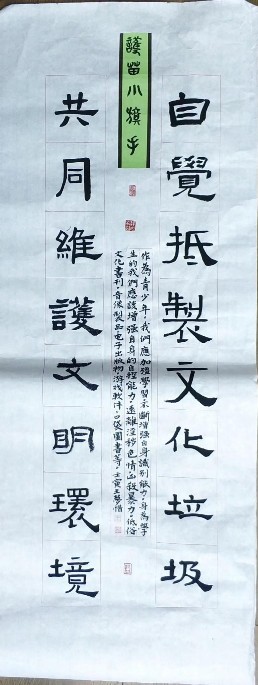 自覺抵製文化垃圾
護苗小旗手
作為青少年，我們應加強學習，不斷增强自身識別能力，身為學
生的我們應該增强自身的自控能力，遠離淫穢色情、凶殺暴力、低俗
文化書刊，音像製品、电子出版物游戏軟件、口袋圖書等，壬寅王梦惜
共同維護文明環境